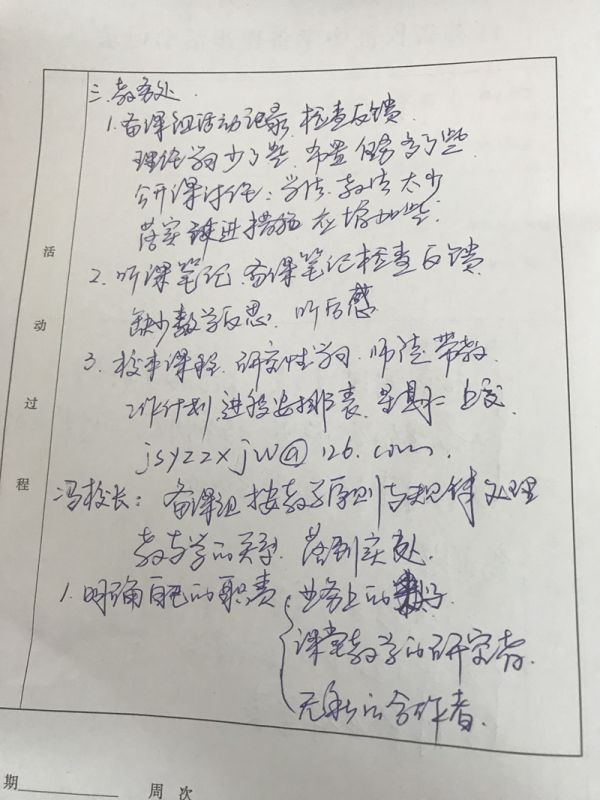 三、教务处
1. 备课组活动记录 检查反馈
理论学习少了些 布置任务多了些
公开课讨论：学法、教法太少
落实改进措施 应增加些.
2. 听课笔记、备课笔记检查反馈
缺少教学反思、听后感
3. 校本课程、研究性学习、师徒带教
工作计划、进程安排表、星期二上交.
jsyzzxjw@126.com.
冯校长： 备课组按教学原则与规律处理
教与学的关系. 落到实处.
1. 明确自己的职责 { 业务上的
课堂教学的研究者.
无私的合作者.
活动过程
期 周次